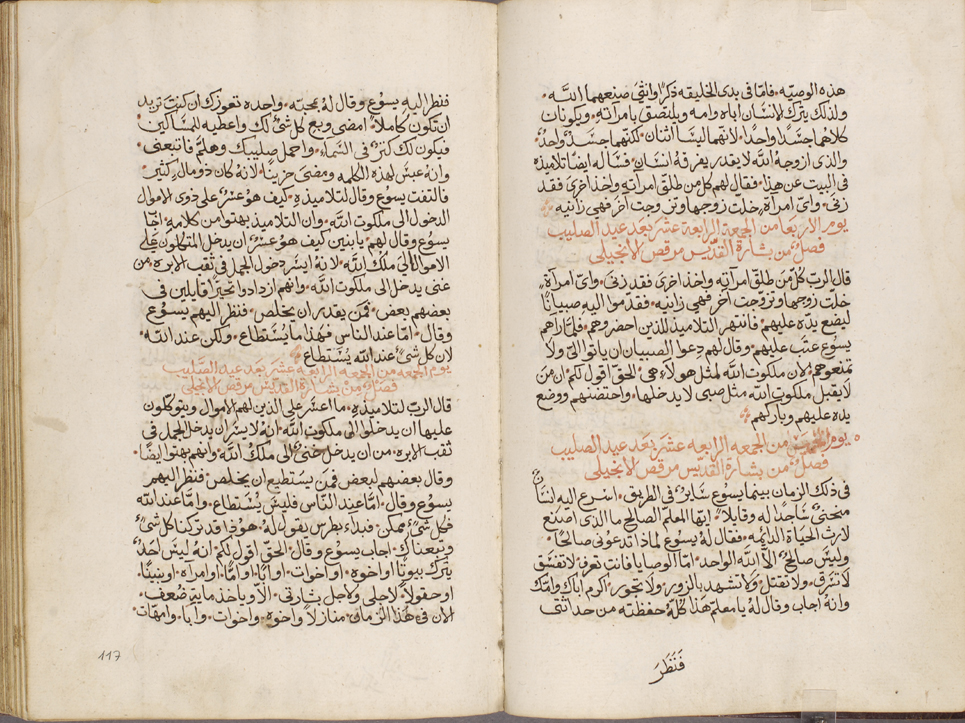 هذه الوصيه، فاما فى بدى الخليقه ذكرًا وانثى صنعهما الله،
ولذلك يترك الانسان اباه وامه ويلتصق بامرآته، ويكونان
كلاهما جسدًا واحدًا، لانهما ليسا اثنان، لكنهما جسدٌ واحدٌ
والذى ازوجه الله لا يقدر يفرقه انسان، فساله ايضًا تلاميذه
فى البيت عن هذا، فقال لهم كل من طلق امرآته واخذ اخرى فقد
زنى، واى امرآة خلت زوجها وتزوجت آخر فهى زانيه
يوم الاربعا من الجمعة الرابعة عشر بعد عيد الصليب
فصل من بشارة القديس مرقص الانجيلى
قال الرب كل من طلق مرآته واخذ اخرى فقد زنى، واى امرآة
خلت زوجها وتزوجت آخر فهى زانيه، فقدموا اليه صبيانًا
ليضع يده عليهم، فانتهر التلاميذ للذين احضروهم، فلما رآهم
يسوع عتب عليهم، وقال لهم دعوا الصبيان ان ياتوا الىّ ولا
تمنعوهم، لان ملكوت الله لمثل هولاء هى، الحق اقول لكم، ان من
لا يقبل ملكوت الله مثل صبى لا يدخلها، واحتضنهم ووضع
يده عليهم وباركهم
يوم الخميس من الجمعه الرابعه عشر بعد عيد الصليب
فصل من بشارة القديس مرقص الانجيلى
فى ذلك الزمان بينما يسوع سايرٌ فى الطريق، اسرع اليه انسانٌ
منحنى ساجدًا له وقايلاً، ايها المعلم الصالح ما الذى اصنع
لارث الحياة الدايمه، فقال له يسوع لماذا تدعونى صالحًا،
وليس صالحٌ، الا الله الواحد، اما الوصايا فانت تعرف، لا تفسق
لا تسرق، ولا تقتل، ولا تشهد بالزور، ولا تجور، اكرم اباك وامك
وانه اجاب وقال له يا معلم هذا كله حفظته من حداثتى
فنظر
فنظر اليه يسوع وقال له بمحبه، واحده تعوزك ان كنت تريد
ان تكون كاملاً، امضى وبع كل شئ لك واعطيه للمساكين
فيكون لك كنزٌ فى السمآء، واحمل صليبك وهلم فاتبعنى،
وانه عبس لهذه الكلمه ومضى حزينًا، لانه كان ذو مال كثير
فالتفت يسوع وقال لتلاميذه، كيف هو عسرٌ على ذوى الاموال
الدخول الى ملكوت الله، وان التلاميذ بهتوا من كلامه، اجاب
يسوع وقال لهم، يا بنين كيف هو عسرٌ ان يدخل المتكلون على
الاموال الى ملك الله، لانه ايسر دخول الجمل فى ثقب الابره، من
غنى يدخل الى ملكوت الله، وانهم ازدادوا تحيرًا قايلين فى
بعضهم بعض، فمن يقدر ان يخلص، فنظر اليهم يسوع
وقال، اما عند الناس فهذا ما يُستطاع، ولكن عند الله،
لان كل شئ عند الله يُستطاع
يوم الجمعه من الجمعه الرابعة عشر بعد عيد الصليب
فصل من بشارة القديس مرقص الانجيلى
قال الرب لتلاميذه، ما اعسر على الذين لهم الاموال ويتوكلون
عليها ان يدخلوا الى ملكوت الله، انه لايسر ان يدخل الجمل فى
ثقب الابره، من ان يدخل غنىٌ الى ملك الله وانهم بهتوا ايضًا،
وقال بعضهم لبعض فمن يستطيع ان يخلص، فنظر اليهم
يسوع وقال، اما عند الناس فليس يُستطاع، واما عند الله
فكل شئ ممكن، فبداء بطرس يقول له، هوذا قد تركنا كل شئ
وتبعناك، اجاب يسوع وقال، الحق اقول لكم، انه ليس احدٌ
يترك بيوتًا او اخوه، او اخوات، او ابًا، او امًا، او امرآه، او بنينًا،
او حقولاً، لاجلى ولاجل بشارتى، الا وياخذ مايه ضعف،
الان فى هذا الزمان، منازلاً، واخوه، واخوات، وآبا، وامهات،
117